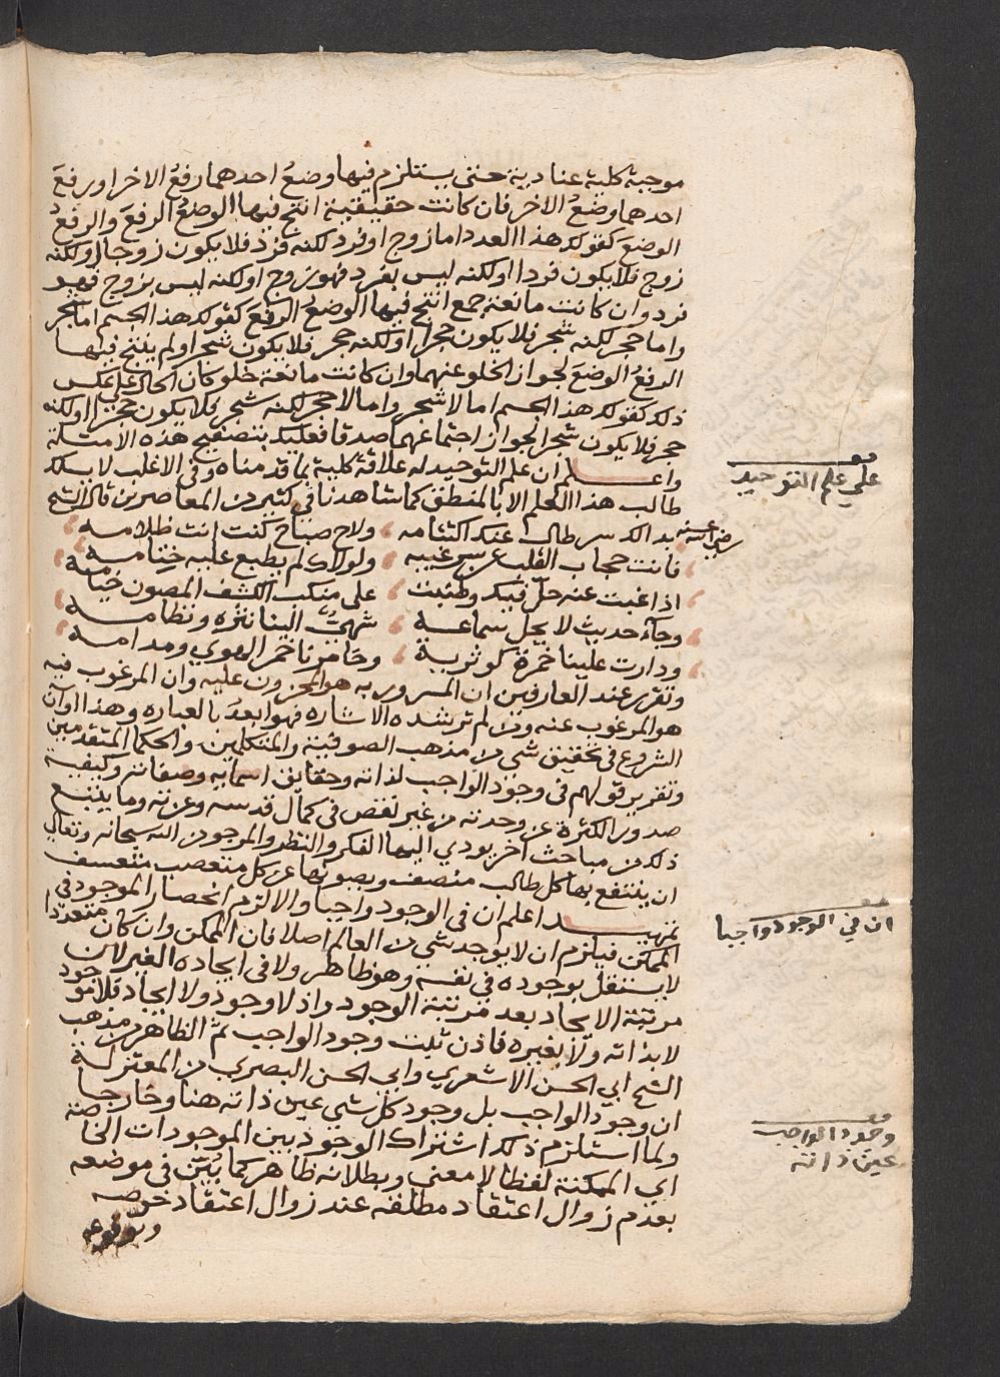 موجبة كلية عنادية حتى يستلزم فيها وضعُ احدهما رفعُ الاخر او رفعَ
احدهما وضعُ الاخر فان كانت حقيقية انتج فيها الوضعُ الرفعَ والرفعُ
الوضعَ كقولك هذا العدد اما زوج او فرد لكنه فرد فلا يكون زوجا او لكنه
زوج فلا يكون فردا او لكنه ليس بفرد فهو زوج او لكنه ليس بزوج فهو
فرد وان كانت مانعة جمع انتج فيها الوضعُ الرفعَ كقولك هذا الجسم اما شجر
واما حجر لكنه شجر فلا يكون حجرا او لكنه حجر فلا يكون شجرا ولم ينتج فيها
الرفعُ الوضعَ لجواز الخلو عنهما وان كانت مانعة خلو كان الحال على عكس
ذلك كقولك هذا الجسم اما لا شجر واما لا حجر لكنه شجر فلا يكون حجرا او لكنه
حجر فلا يكون شجرا لجواز اجتماعهما صدقا فعليك بتصفح هذه الامثلة
واعلم ان علم التوحيد له علاقة كلية بما قدمناه وفي الاغلب لا يسلك
طالب هذا العلم الا بالمنطق كما شاهدنا في كثير من المعاصرين قال الشيخ
رضي الله عنه بدا لك سر طال عنك اكتتامه ولاح صباح كنت انت ظلامه
فانت حجاب القلب عن سر غيبه ولولاك لم يطبع عليه ختامه
اذا غبت عنه حلّ فيك وطنبت على منكب الكشف المصون خيامه
وجآء حديث لا يمل سماعه شهيٌّ الينا نثره ونظامه
ودارت علينا خمرة كوثرية وخامرنا خمر الهوي ومدامه
وتقرر عند العارفين ان المسرور به هو المحزون عليه وان المرغوب فيه
هو المرغوب عنه ومن لم ترشده الاشاره فهو ابعدُ بالعباره وهذا اوان
الشروع في تحقيق شي من مذهب الصوفية والمتكلمين والحكما المتقدمين
وتقرير قولهم في وجود الواجب لذاته وحقايق اسمايه وصفاته وكيفية
صدور الكثرة عن وحدته من غير نقص في كمال قدسه وعزته وما يتبع
ذلك من مباحث اخر يودي اليها الفكر والنظر والمرجو من الله سبحانه وتعالى
ان ينتفع بها كل طالب منصف ويصونها عن كل متعصب متعسف
تمهيد اعلم ان في الوجود واجبا والا لزم انحصار الموجود في
الممكن فيلزم ان لا يوجد شي من العالم اصلا فان الممكن وان كان متعددا
لا يستقل بوجوده في نفسه وهو ظاهر ولا في ايجاده الغير لان
مرتبة الايجاد بعد مرتبة الوجود واذ لا وجود ولا ايجاد فلا موجود
لا بذاته ولا بغيره فاذن ثبت وجود الواجب ثم الظاهر من مذهب
الشيخ ابي الحسن الاشعري وابي الحسن البصري من المعتزلة
ان وجود الواجب بل وجود كل شي عين ذاته هنا وخارجا
ولما استلزم ذلك اشتراك الوجود بين الموجودات الخاصة
اي الممكنة لفظا لا معنى وبطلانه ظاهر كما بُيّن في موضعه
بعدم زوال اعتقاد مطلقه عند زوال اعتقاد خوصه
وبوقوعه
على علم التوحيد
ان في الوجود واجبا
وجود الواجب
عين ذاته